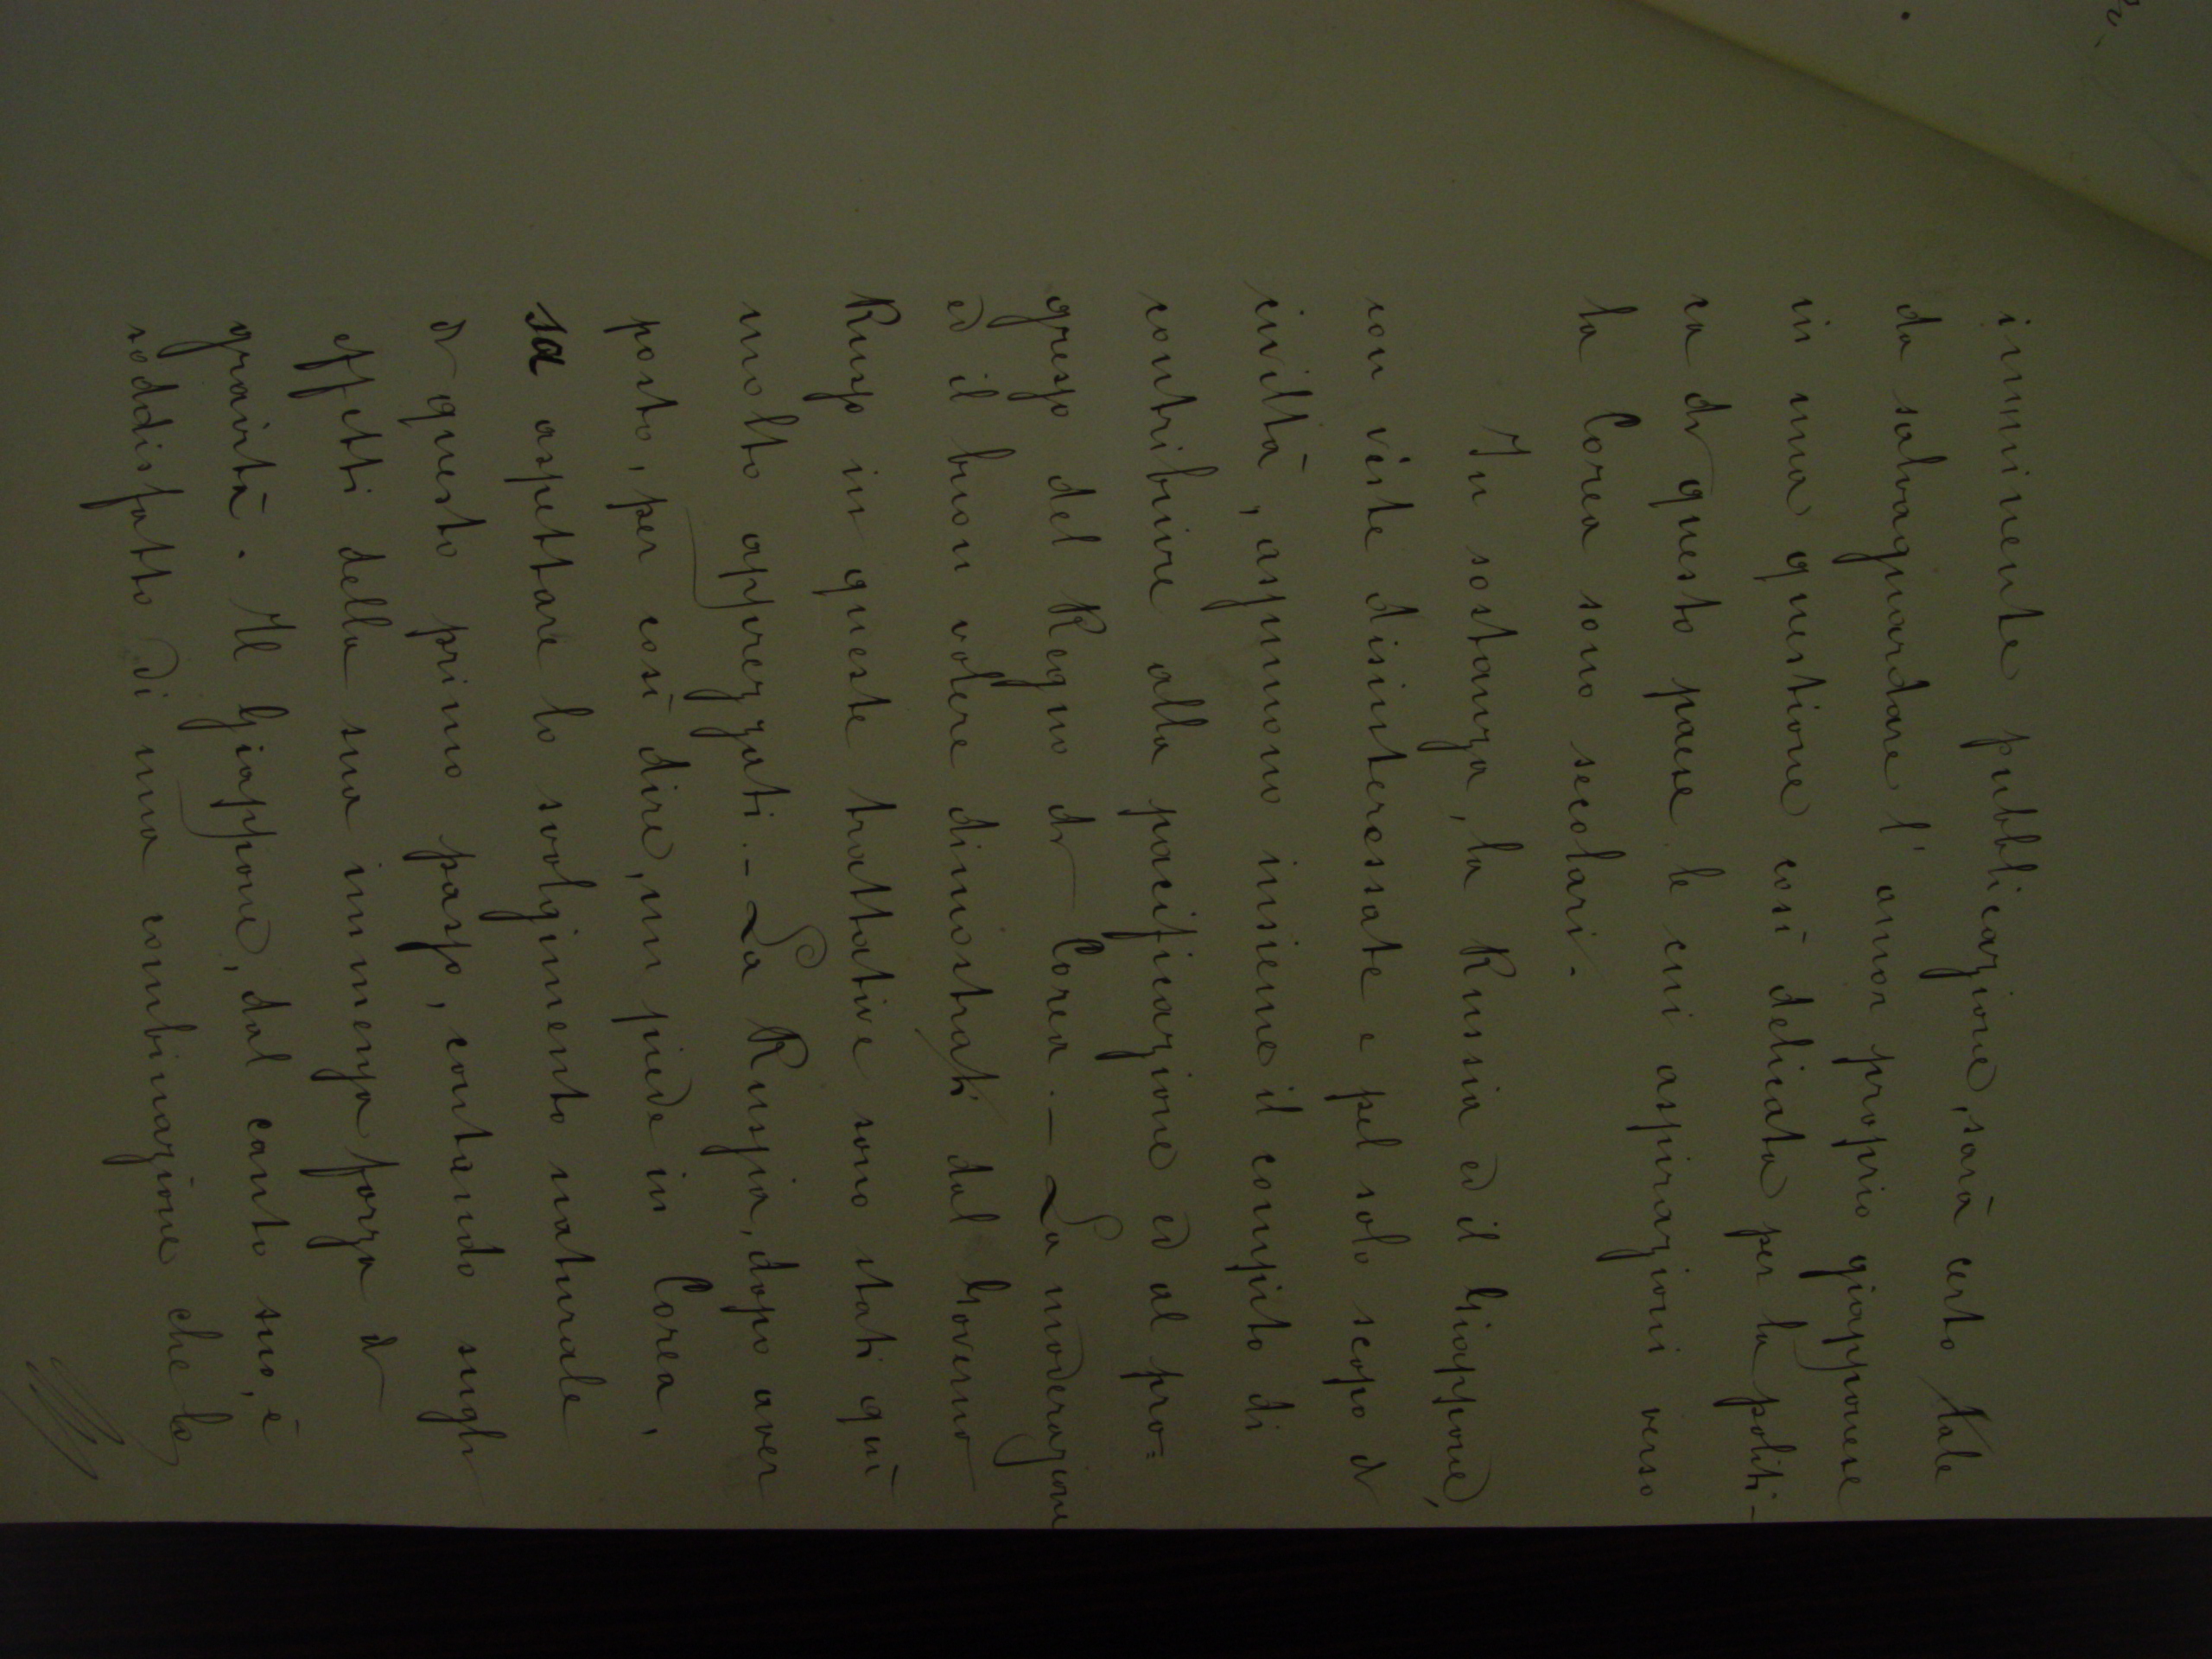 imminente pubblicazione, sarà certo tale
da salvaguardare l'amor proprio giapponese
in una questione così delicata per la politi-
ca di questo paese le cui aspirazioni verso
la Corea sono secolari.
In sostanza, la Russia ed il Giappone,
con viste disinteressate e pel solo scopo di
civiltà, assumono insieme il compito di
contribuire alla pacificazione ed al pro=
gresso del Regno di Corea. - La moderazione
ed il buon volere dimostrati dal Governo
Russo in queste trattative sono stati quì
molto apprezzati. - La Russia, dopo aver
posto, per così dire, un piede in Corea,
sa aspettare lo svolgimento naturale
di questo primo passo, contando sugli
effetti della sua immensa forza di
gravità. Il Giappone, dal canto suo, è
soddisfatto di una combinazione che lo